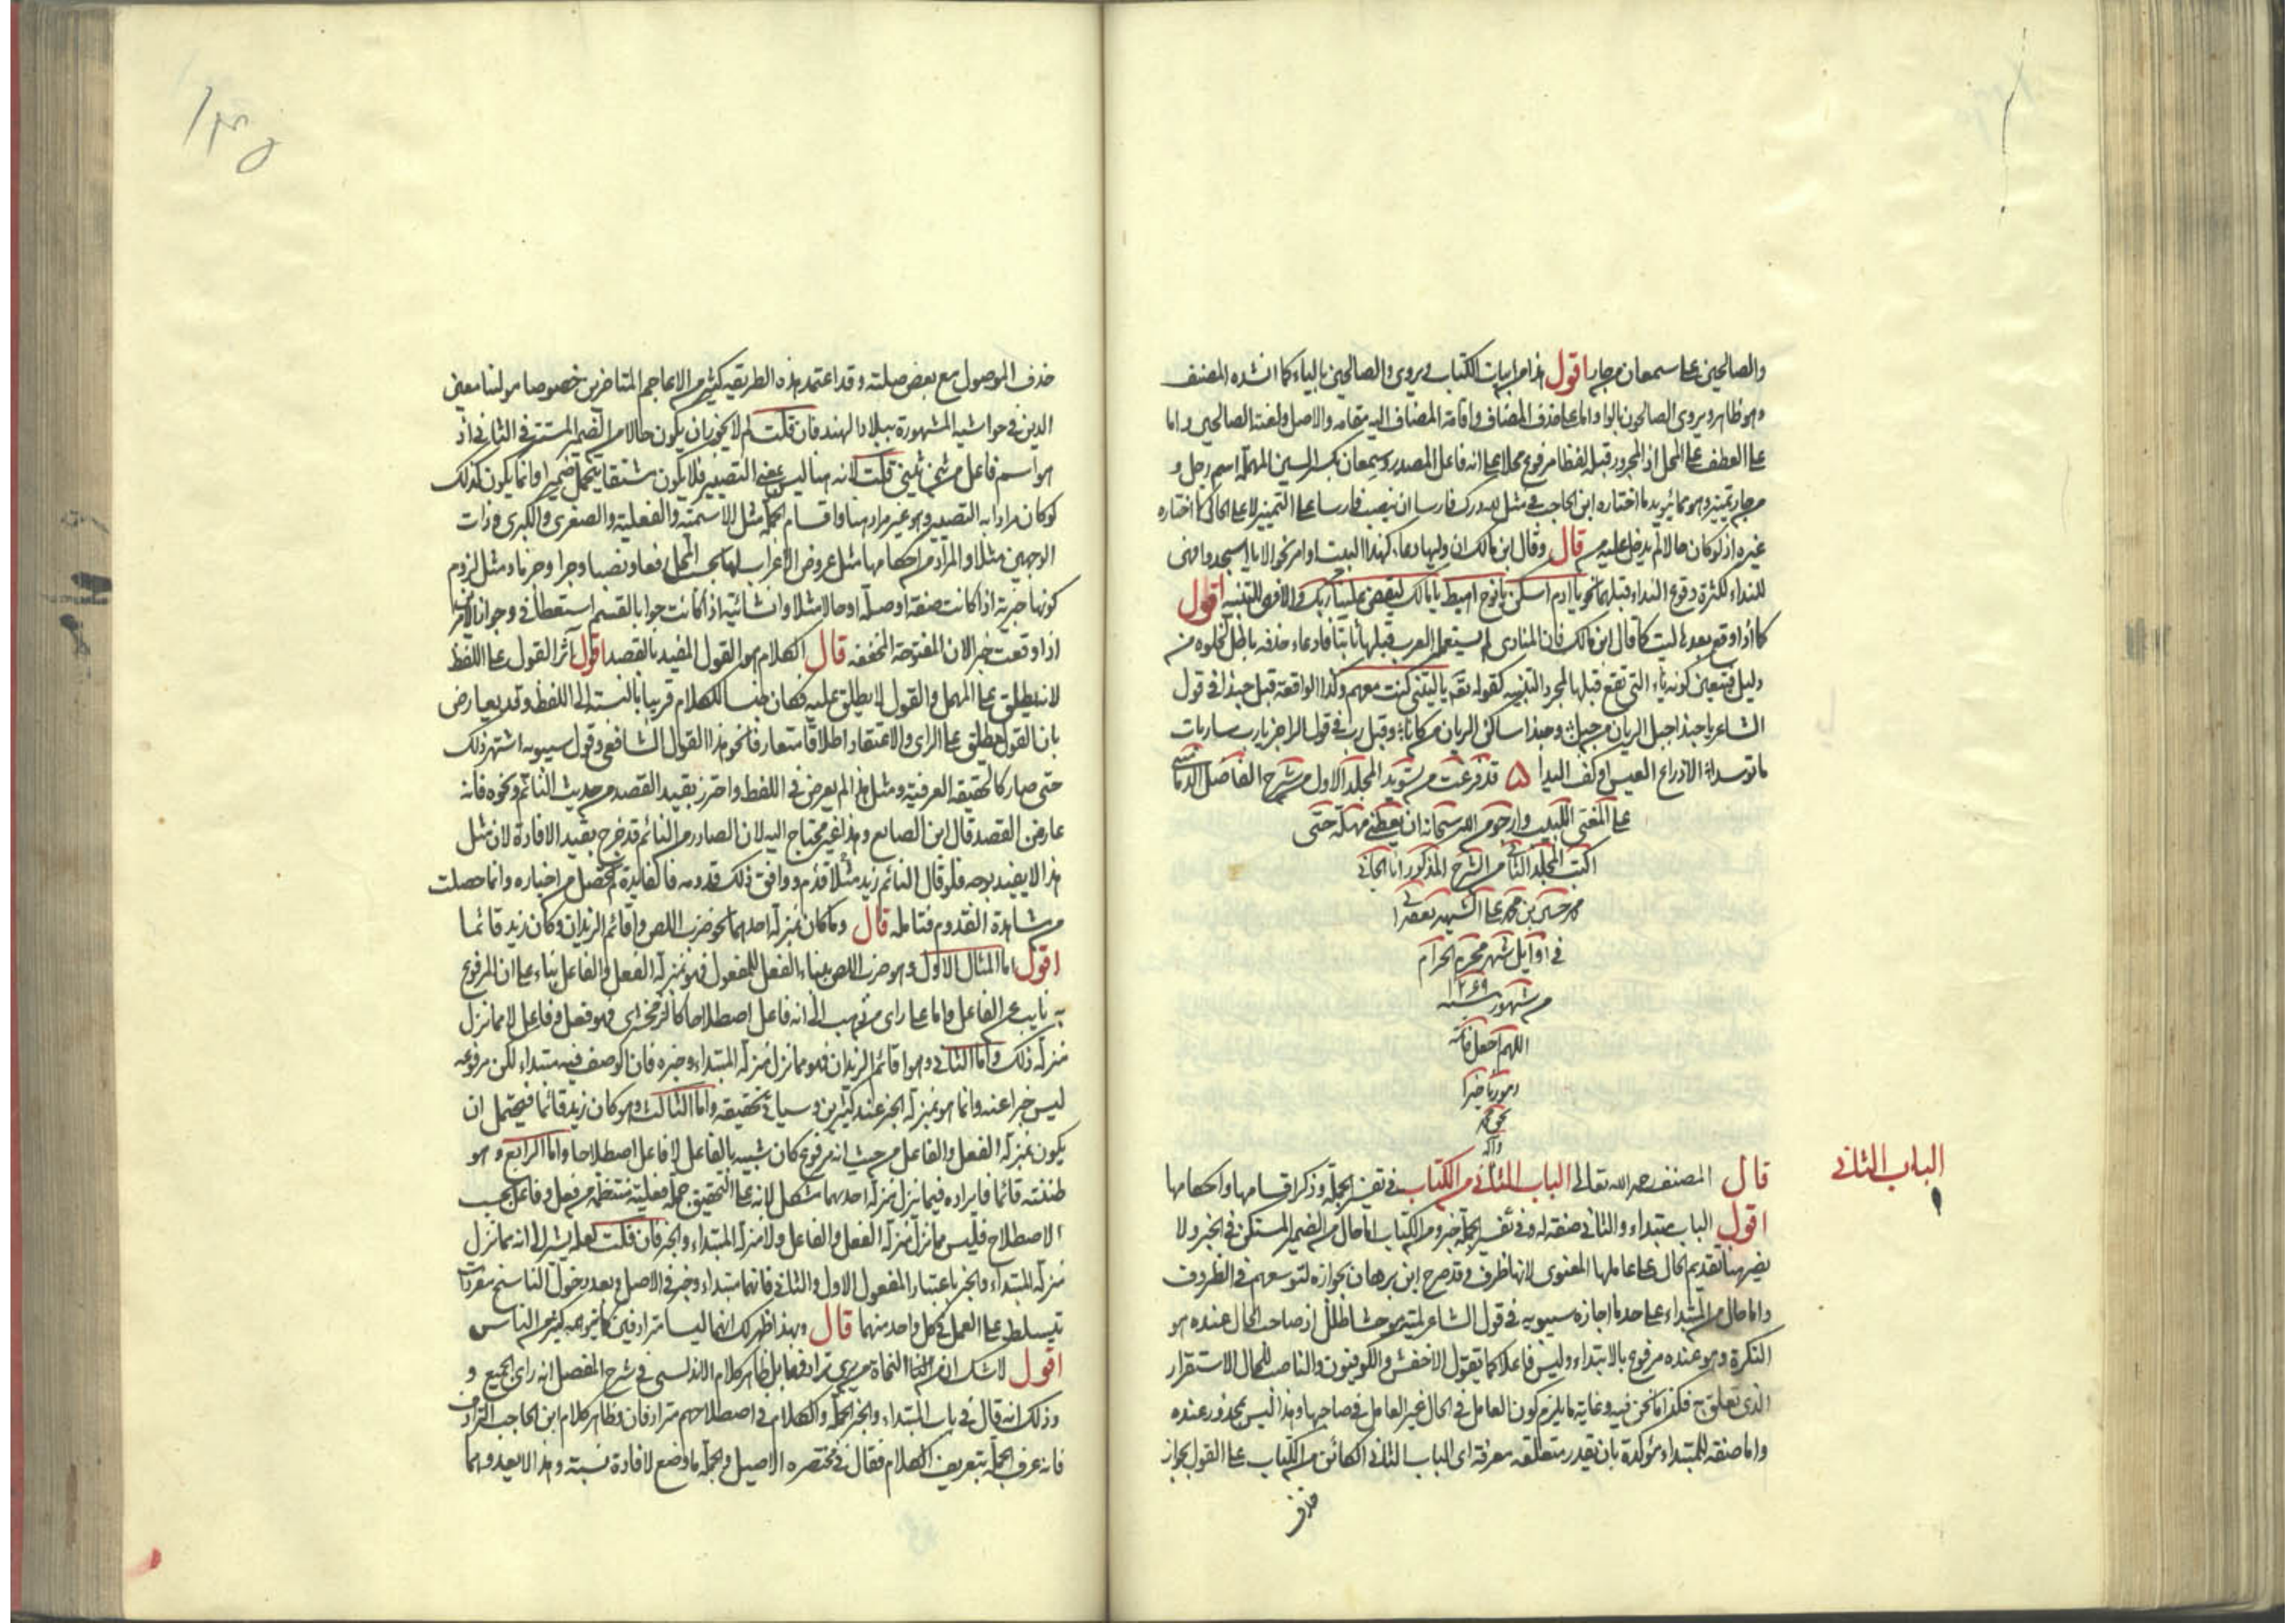 والصالحين على سمعان من جار اقول هذا من ابيات الكتاب ويروى والصالحين بالياء كما انشده المصنف
وهو ظاهر ويروى الصالحون بالواو اما على حذف المضاف واقامة المضاف اليه مقامه والاصل ولعنة الصالحين واما
على العطف على المحل اذ المجرور قبله لفظا مرفوع محلا على انه فاعل المصدر وسمعان بكسر السين المهملة اسم رجل و
من جار تمييز وهو مما يؤيد ما اختاره ابن الحاجب في مثل لله درك فارسا ان نصب فارسا على التمييز لا على الحال كما اختاره
غيره اذ لو كان حالا لم يدخل عليه من قال وقال ابن مالك ان وليها دعاء كهذا البيت او امر نحو الا يا اسجدوا فهي
للنداء لكثرة وقوع النداء قبلهما نحو يا ادم اسكن يا نوح اهبط يا مالك ليقض علينا ربك والا فهي للتنبيه اقول
كما اذا وقع بعدها ليت كما قال ابن مالك فان المنادى لم يستعمل العرب قبلها ثابتا فادعاء حذفه باطل لخلوه من
دليل فتعين كونه ياء التي تقع قبلها لمجرد التنبيه كقوله تعه يا ليتني كنت معهم وكذا الواقعة قبل حبذا في قول
الشاعر يا حبذا جبل الريان من جبل وحبذا ساكن الريان من كانا وقبل رب في قول الراجز يا رب سار بات
ما توسدا الا ذراع العيس او كف اليدا ۵ قد فرغت من تسويد المجلد الاول من شرح الفاضل الدمامينى
على المغنى اللبيب وارجو من الله سبحانه ان يعطنى مهلة حتى
اكتب المجلد الثانى من الشرح المذكور انا الجانى
محمد حسين بن محمد على الشهير
في اوايل شهر محرم الحرام
من شهور سنه ١٢٦٩
اللهم اجعل خاتمة
امورنا خيرا
بحق محمد
وآله
الباب الثانى
قال المصنف رحمه الله تعالى الباب الثانى من الكتاب في تفسير الجملة وذكر اقسامها واحكامها
اقول الباب مبتداء والثانى صفته له وفي تفسير الجملة خبر ومن الكتاب اما حال من الضمير المستكن في الخبر ولا
يضر هنا تقديم الحال على عاملها المعنوى لانها ظرف وقد صرح ابن برهان بجوازه لتوسعهم في الظروف
واما حال من المبتداء على حد ما اجازه سيبويه في قول الشاعر لمية موحشا طلل اذ صاحب الحال عنده هو
النكرة وهو عنده مرفوع بالابتداء وليس فاعلا كما يقول الاخفش والكوفيون والناصب للحال الاستقرار
الذى تعلق به فكذا ما نحن فيه وغاية ما يلزم كون العامل في الحال غير العامل في صاحبها وهذا ليس بمحذور عنده
واما صفة للمبتداء مؤكدة بان يقدر متعلقه معرفة اى الباب الثانى الكائن من الكتاب على القول بجواز
حذف
حذف الموصول مع بعض صلته وقد اعتمد هذه الطريقة كثير من الاعاجم المتاخرين خصوصا مولنا معين
الدين في حواشيه المشهورة ببلاد الهند فان قلت لم لا يجوز ان يكون حالا من الضمير المستتر في الثانى اذ
هو اسم فاعل من ثنى يثنى قلت لانه هنا ليس بمعنى التصيير فلا يكون مشتقا يتحمل ضميرا وانما يكون كذلك
لو كان مرادا به التصيير وهو غير مراد هنا واقسام الجملة مثل الاسمية والفعلية والصغرى والكبرى وذات
الوجهين مثلا والمراد من احكامها مثل عروض الاعراب لها بحسب المحل رفعا ونصبا وجرا وجزما ومثل لزوم
كونها خبرية اذا كانت صفة او صلة او حالا مثلا وانشائية اذا كانت جوابا لقسم استعطافى وجواز الامرين
اذا وقعت خبرا لان المفتوحة المخففة قال الكلام هو القول المفيد بالقصد اقول آثر القول على اللفظ
لانه يطلق على المهمل والقول لا يطلق عليه فكان جنسا للكلام قريبا بالنسبة الى اللفظ وقد يعارض
بان القول يطلق على الراى والاعتقاد اطلاقا متعارفا نحو هذا القول الشافعى وقول سيبويه اشتهر ذلك
حتى صار كالحقيقة العرفية ومثل هذا لم يعرض في اللفظ واحترز بقيد القصد من حديث النائم ونحوه فانه
عار من القصد قال ابن الصايع وهذا غير محتاج اليه لان الصادر من النائم قد خرج بقيد الافادة لان مثل
هذا لا يفيد بوجه فلو قال النائم زيد مثلا قدم ووافق ذلك قدومه فالفايدة لم تحصل من اخباره وانما حصلت
من مشاهدة القدوم فتامله قال وما كان بمنزلة احدهما نحو ضرب اللص واقائم الزيدان وكان زيد قائما
اقول اما المثال الاول وهو ضرب اللص ببناء الفعل للمفعول فهو بمنزلة الفعل والفاعل بناء على ان المرفوع
به نايب عن الفاعل واما على راى من ذهب الى انه فاعل اصطلاحا كالزمخشرى فهو فعل وفاعل لا مما نزل
منزلة ذلك واما الثانى وهو اقائم الزيدان فهو مما نزل منزلة المبتداء وخبره فان الوصف فيه مبتداء لكن مرفوعه
ليس خبرا عنه وانما هو بمنزلة الخبر عند كثيرين وسياتى تحقيقه واما الثالث وهو كان زيد قائما فيحتمل ان
يكون بمنزلة الفعل والفاعل من حيث انه مرفوع كان شبيه بالفاعل لا فاعل اصطلاحا واما الرابع وهو
ظننته قائما فايراده فيما نزل منزلة احدهما مشكل لانه على التحقيق جملة فعلية منتظمة من فعل وفاعل بحسب
الاصطلاح فليس مما نزل منزلة الفعل والفاعل ولا منزلة المبتداء والخبر فان قلت لعله يشير الى انه مما نزل
منزلة المبتداء والخبر باعتبار المفعول الاول والثانى فانهما مبتداء وخبر في الاصل وبعد دخول الناسخ مفردان
تسلط على العمل في كل واحد منهما قال وبهذا ظهر لك انهما ليسا مترادفين كما يتوهمه كثير من الناس
اقول لا شك ان من النحاة من يرى ترادفهما بل ظاهر كلام الاندلسى في شرح المفصل انه راى الجميع و
وذلك انه قال في باب المبتداء والخبر الجملة والكلام في اصطلاحهم مترادفان وظاهر كلام ابن الحاجب الترادف
فانه عرف الجملة بتعريف الكلام فقال في مختصره الاصيل والجملة ما وضع لافادة نسبة وهذا لا يعيد وهما